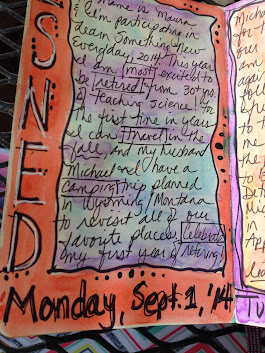 name is Maura
& I'm participating in
Learn Something New
Everyday, 2014. This year
I am most excited to
be retired from 30+ yrs
of teaching science. For
the first time in years
I can travel in the
fall and my husband
Michael and I have a
camping trip planned
in Wyoming/Montana
to revisit all of our
favorite places. Celebrate
my first year of retiring!
SNED
Monday, Sept. 1, '14
Michael
for
our
am
again